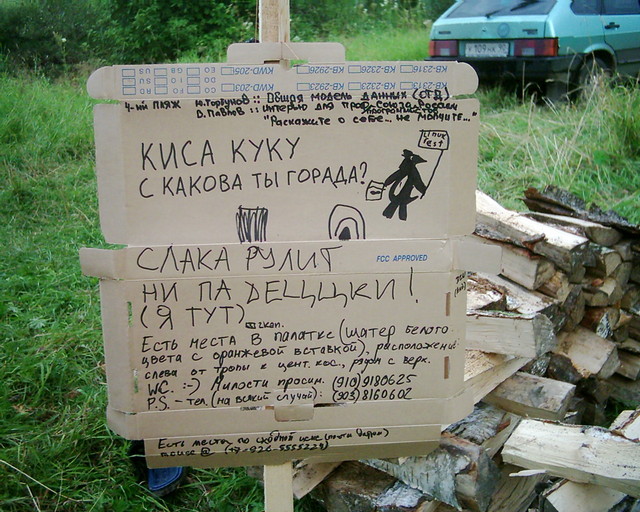 KB-2316 KB-2326 KB-2926 KWD-205
KB-2315 KB-2325 KB-2923 KWD-203
4-ый ПЛЯЖ Н.Горбунов :: Общая модель данных (CTД)
D.Павлов :: интервью для проф.союза
"Расскажите о себе... не молчите..."
Linux Fest
КИСА КУКУ
С КАКОВА ТЫ ГОРАДА?
СЛАКА РУЛИТ
FCC APPROVED
НИ ПА ДЕЦЦКИ!
(Я ТУТ)
Есть места в палатке (шатер белого
цвета с оранжевой вставкой), расположение:
слева от тропы к цент. кос., рядом с верх.
WC. :-) Милости просим. (910)9180625
P.S. - тел. (на всякий случай): (903)8160602
Есть места по сходной цене